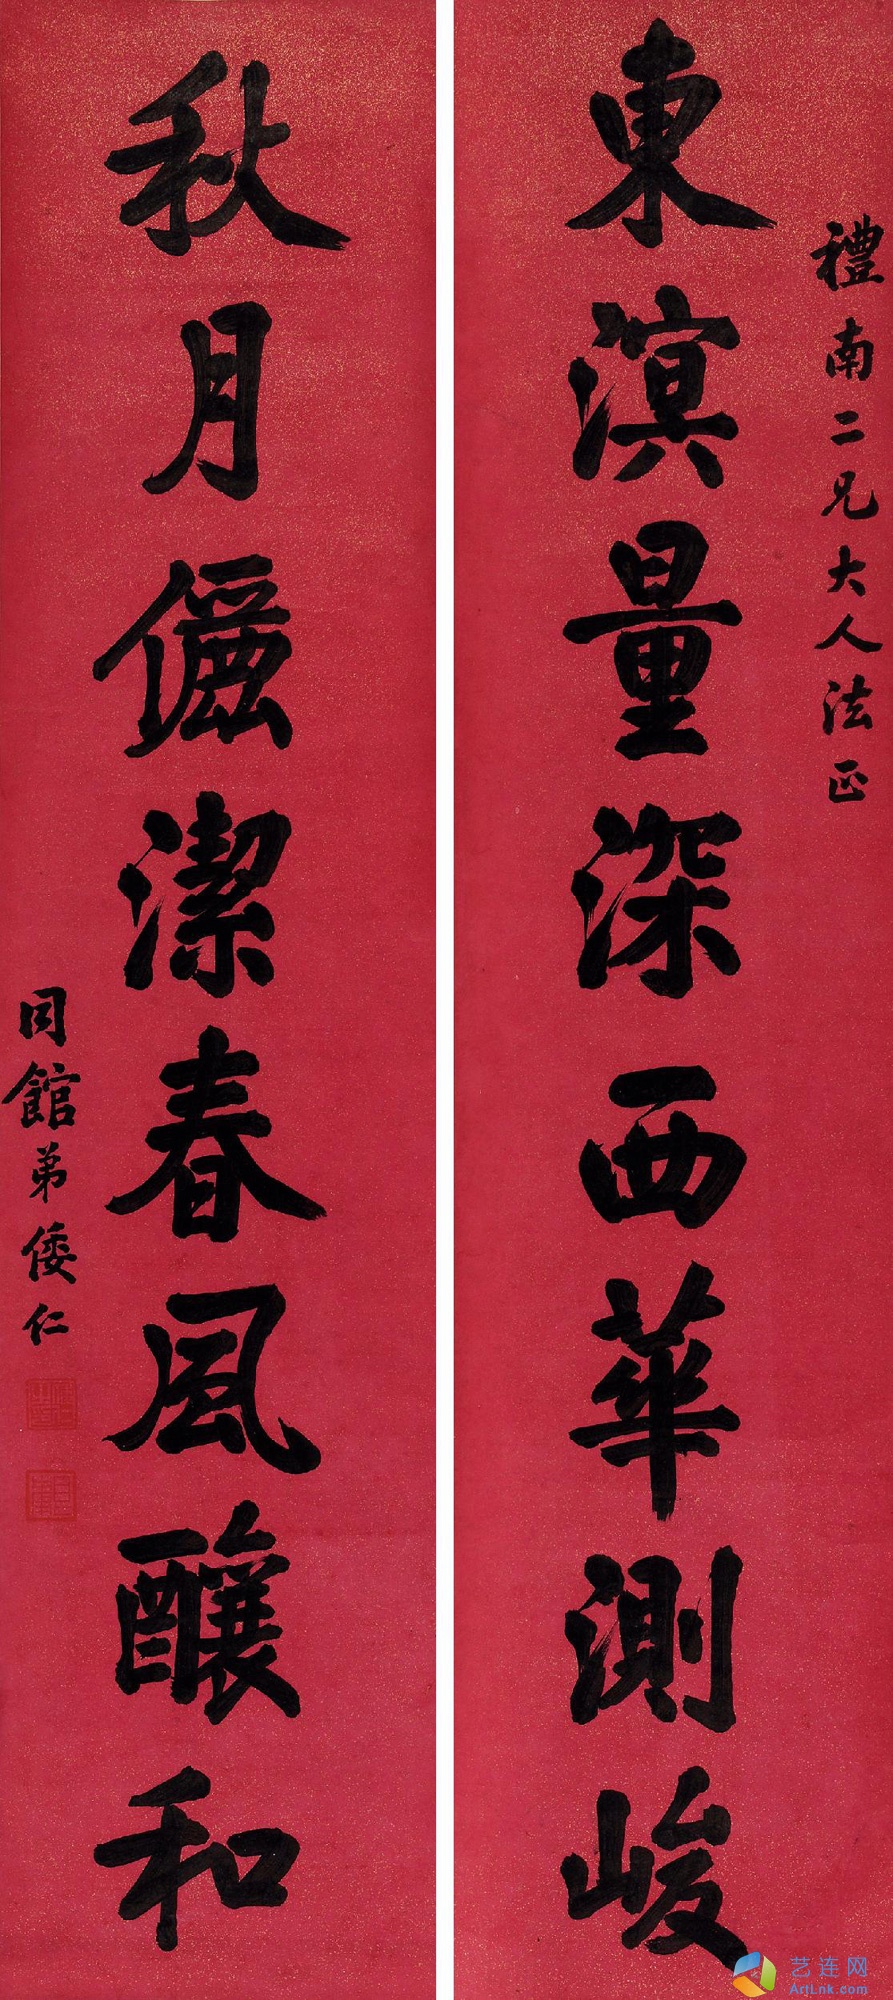 禮南二兄大人法正
東溟量深西華測峻
秋月儷潔春風釀和
同館弟倭仁
艺连网
ArtLnk.com